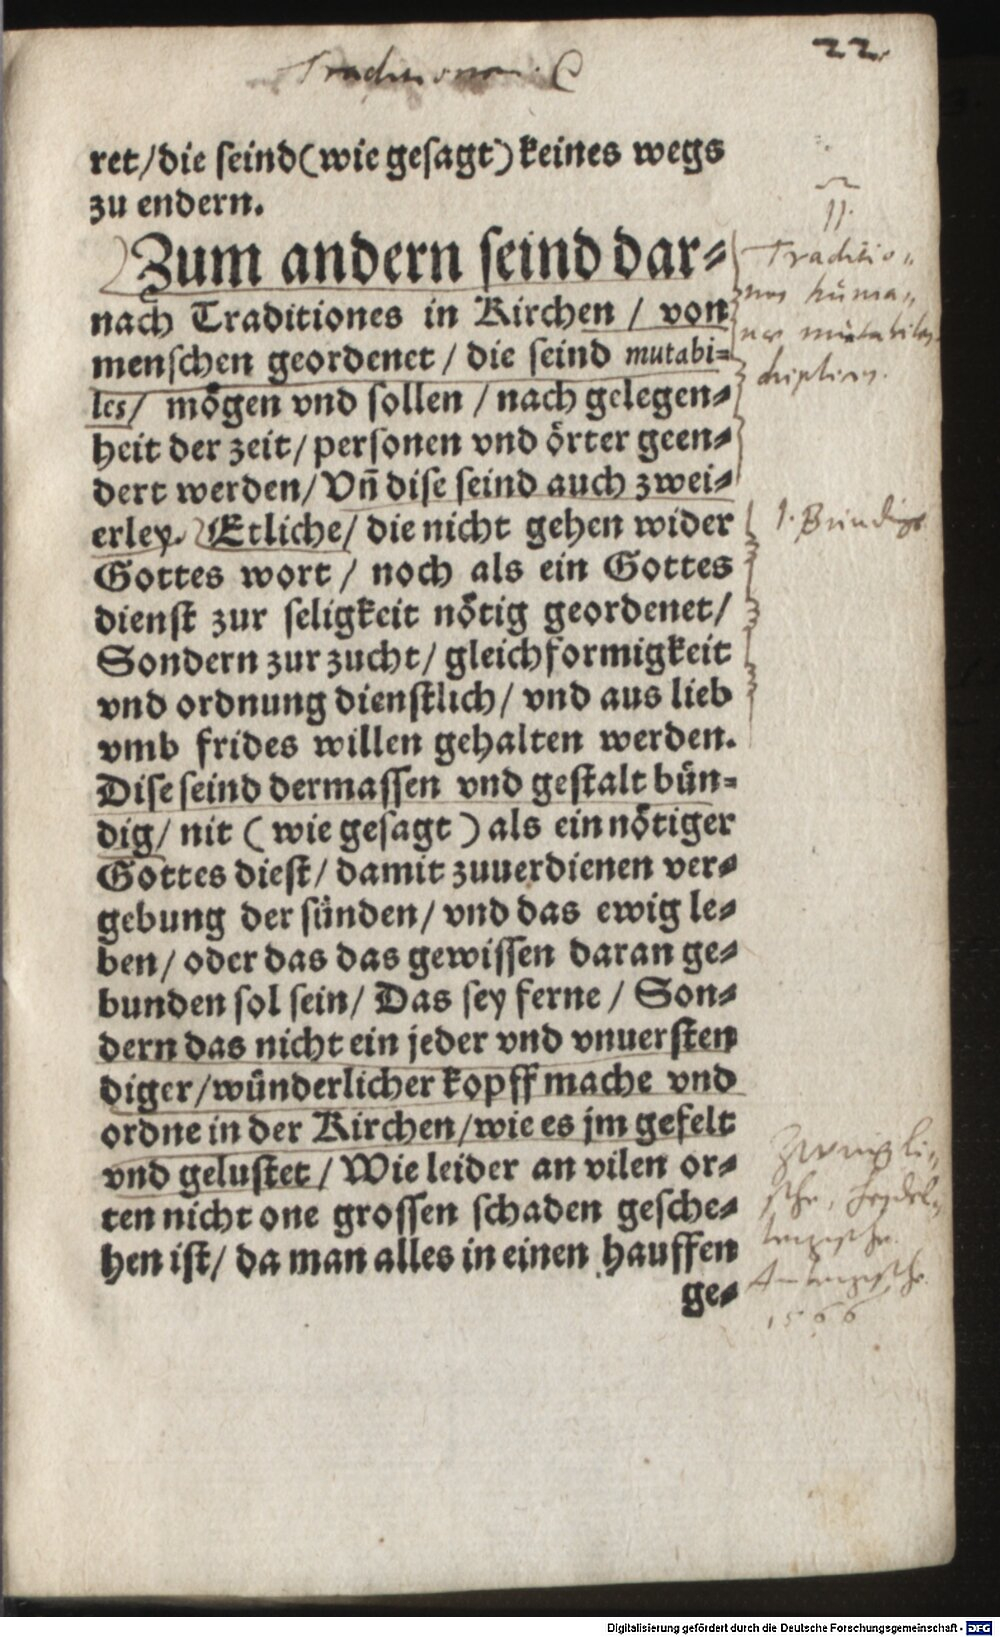 22.
ret/die seind(wie gesagt)keines wegs
zu endern.
Zum andern seind dar-
nach Traditiones in Kirchen / von
menschen geordenet / die seind mutabi-
les/ mögen vnd sollen / nach gelegen-
heit der zeit/personen vnd örter geen-
dert werden/Vñ dise seind auch zwei-
erley. Etliche/die nicht gehen wider
Gottes wort / noch als ein Gottes
dienst zur seligkeit nötig geordenet/
Sondern zur zucht/gleichformigkeit
vnd ordnung dienstlich/ vnd aus lieb
vmb frides willen gehalten werden.
Dise seind dermassen vnd gestalt bün-
dig/ nit ( wie gesagt ) als ein nötiger
Gottes diest/damit zuuerdienen ver-
gebung der sünden/vnd das ewig le-
ben/oder das das gewissen daran ge-
bunden sol sein/ Das sey ferne / Son-
dern das nicht ein jeder vnd vnuersten
diger/wünderlicher kopff mache vnd
ordne in der Kirchen/wie es jm gefelt
vnd gelustet / Wie leider an vilen or-
ten nicht one grossen schaden gesche-
hen ist/ da man alles in einen hauffen
ge-
II.
Traditio-
nes huma-
nae mutabiles
1. Bündige
Zwingli-
sche,
1566
Digitalisierung gefördert durch die Deutsche Forschungsgemeinschaft - DFG